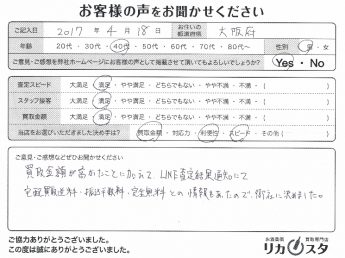 お客様の声をお聞かせください
ご記入日 2017年 4月 18日 お住いの都道府県 大阪府
年齢 20代・30代・40代・50代・60代・70代・80代〜 性別 男・女
ご意見・ご感想を弊社ホームページにお客様の声として掲載させて頂いてもよろしいでしょうか? Yes・No
査定スピード 大満足・満足・やや満足・どちらでもない・やや不満・不満・( )
スタッフ接客 大満足・満足・やや満足・どちらでもない・やや不満・不満・( )
買取金額 大満足・満足・やや満足・どちらでもない・やや不満・不満・( )
当店をお選びいただきました決め手は? 買取金額・対応力・利便性・スピード・その他( )
ご意見・ご感想などぜひお聞かせください
買取金額が高かったことに加えて、LINE査定結果通知にて
宅配買取送料・振込手数料・完全無料 との情報もあったので、御社に決めました。
ご協力ありがとうございました。
この度は誠にありがとうございました。
お酒買取 買取専門店
リカスタ